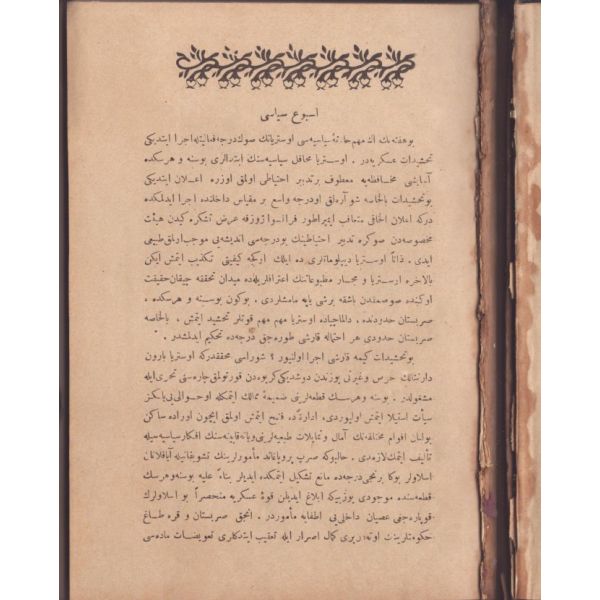 اسبوع سیاسی
بو هفته‌نك اك مهم حادثهٔ سیاسیه‌سی اوستریانك صوك درجه فعالیتله اجرا ایتدیكی
تحشیدات عسكریه‌در . اوستریا محافل سیاسیه‌سنك ابتدالری بوسنه و هرسكده
آسایشی محافظه‌یه معطوف بر تدبیر احتیاطی اولمق اوزره اعلان ایتدیكی
بو تحشیدات بالخاصه شو آره‌لق اودرجه واسع بر مقیاس داخلنده اجرا ایدلمكده
دركه اعلان الحاقی متعاقب ایمپراطور فرانسوا ژوزفه عرض تشكره كیدن هیئت
مخصوصه‌دن صوكره تدبیر احتیاطینك بودرجه‌سی اندیشه‌یی موجب اولمق طبیعی
ایدی . ذاتاً اوستریا دیپلوماتلری ده ایلك اوكجه كیفیتی تكذیب ایتمش ایكن
بالاخره اوستریا و مجار مطبوعاتنك اعترافلریله‌ده میدان تحققه چیقان حقیقت
اوكنده صوصمقدن باشقه برشی یاپه مامشلردی . بوكون بوسنه و هرسكده ،
صربستان حدودنده ، دالماچیاده اوستریا مهم مهم قوتلر تحشید ایتمش ، بالخاصه
صربستان حدودی هر احتماله قارشی طوره‌جق درجه‌ده تحكیم ایدلمشدر .
بو تحشیدات كیمه قارشی اجرا اولنیور ؟ شوراسی محققدركه اوستریا بارون
دارنتالك حرص وغیرتی یوزندن دوشدیكی كریوه‌دن قورتولمق چاره‌سنی تحری ایله
مشغولدر . بوسنه وهرسك قطعه‌لرینی ضمیمهٔ ممالك ایتمكله او حوالی‌یی یالكز
سیاسةً استیلا ایتمش اولیوردی ، اداره‌ً ده فتح ایتمش اولمق ایچون اوراده ساكن
بولنان اقوام مختلفه‌نك آمال و تمایلات طبیعیه‌لرینی ویانه قابینه‌سنك افكار سیاسیه‌سیله
تألیف ایتمك لازمدی . حالبوكه صرپ پروپاغاند مأمورلرینك تشویقاتیله آیاقلانان
اسلاولر بوكا برنجی درجه‌ده مانع تشكیل ایتمكده ایدیلر بناءً علیه بوسنه وهرسك
قطعه‌سنده موجودی یوزبیكه ابلاغ ایدیلن قوهٔ عسكریه منحصراً بو اسلاولرك
قوپاره‌جغی عصیان داخلی‌یی اطفایه مأموردر . انجق صربستان و قره طاغ
حكومتلرینك اوته‌دنبری كمال اصرار ایله تعقیب ایتدكاری تعویضات ماده‌سی